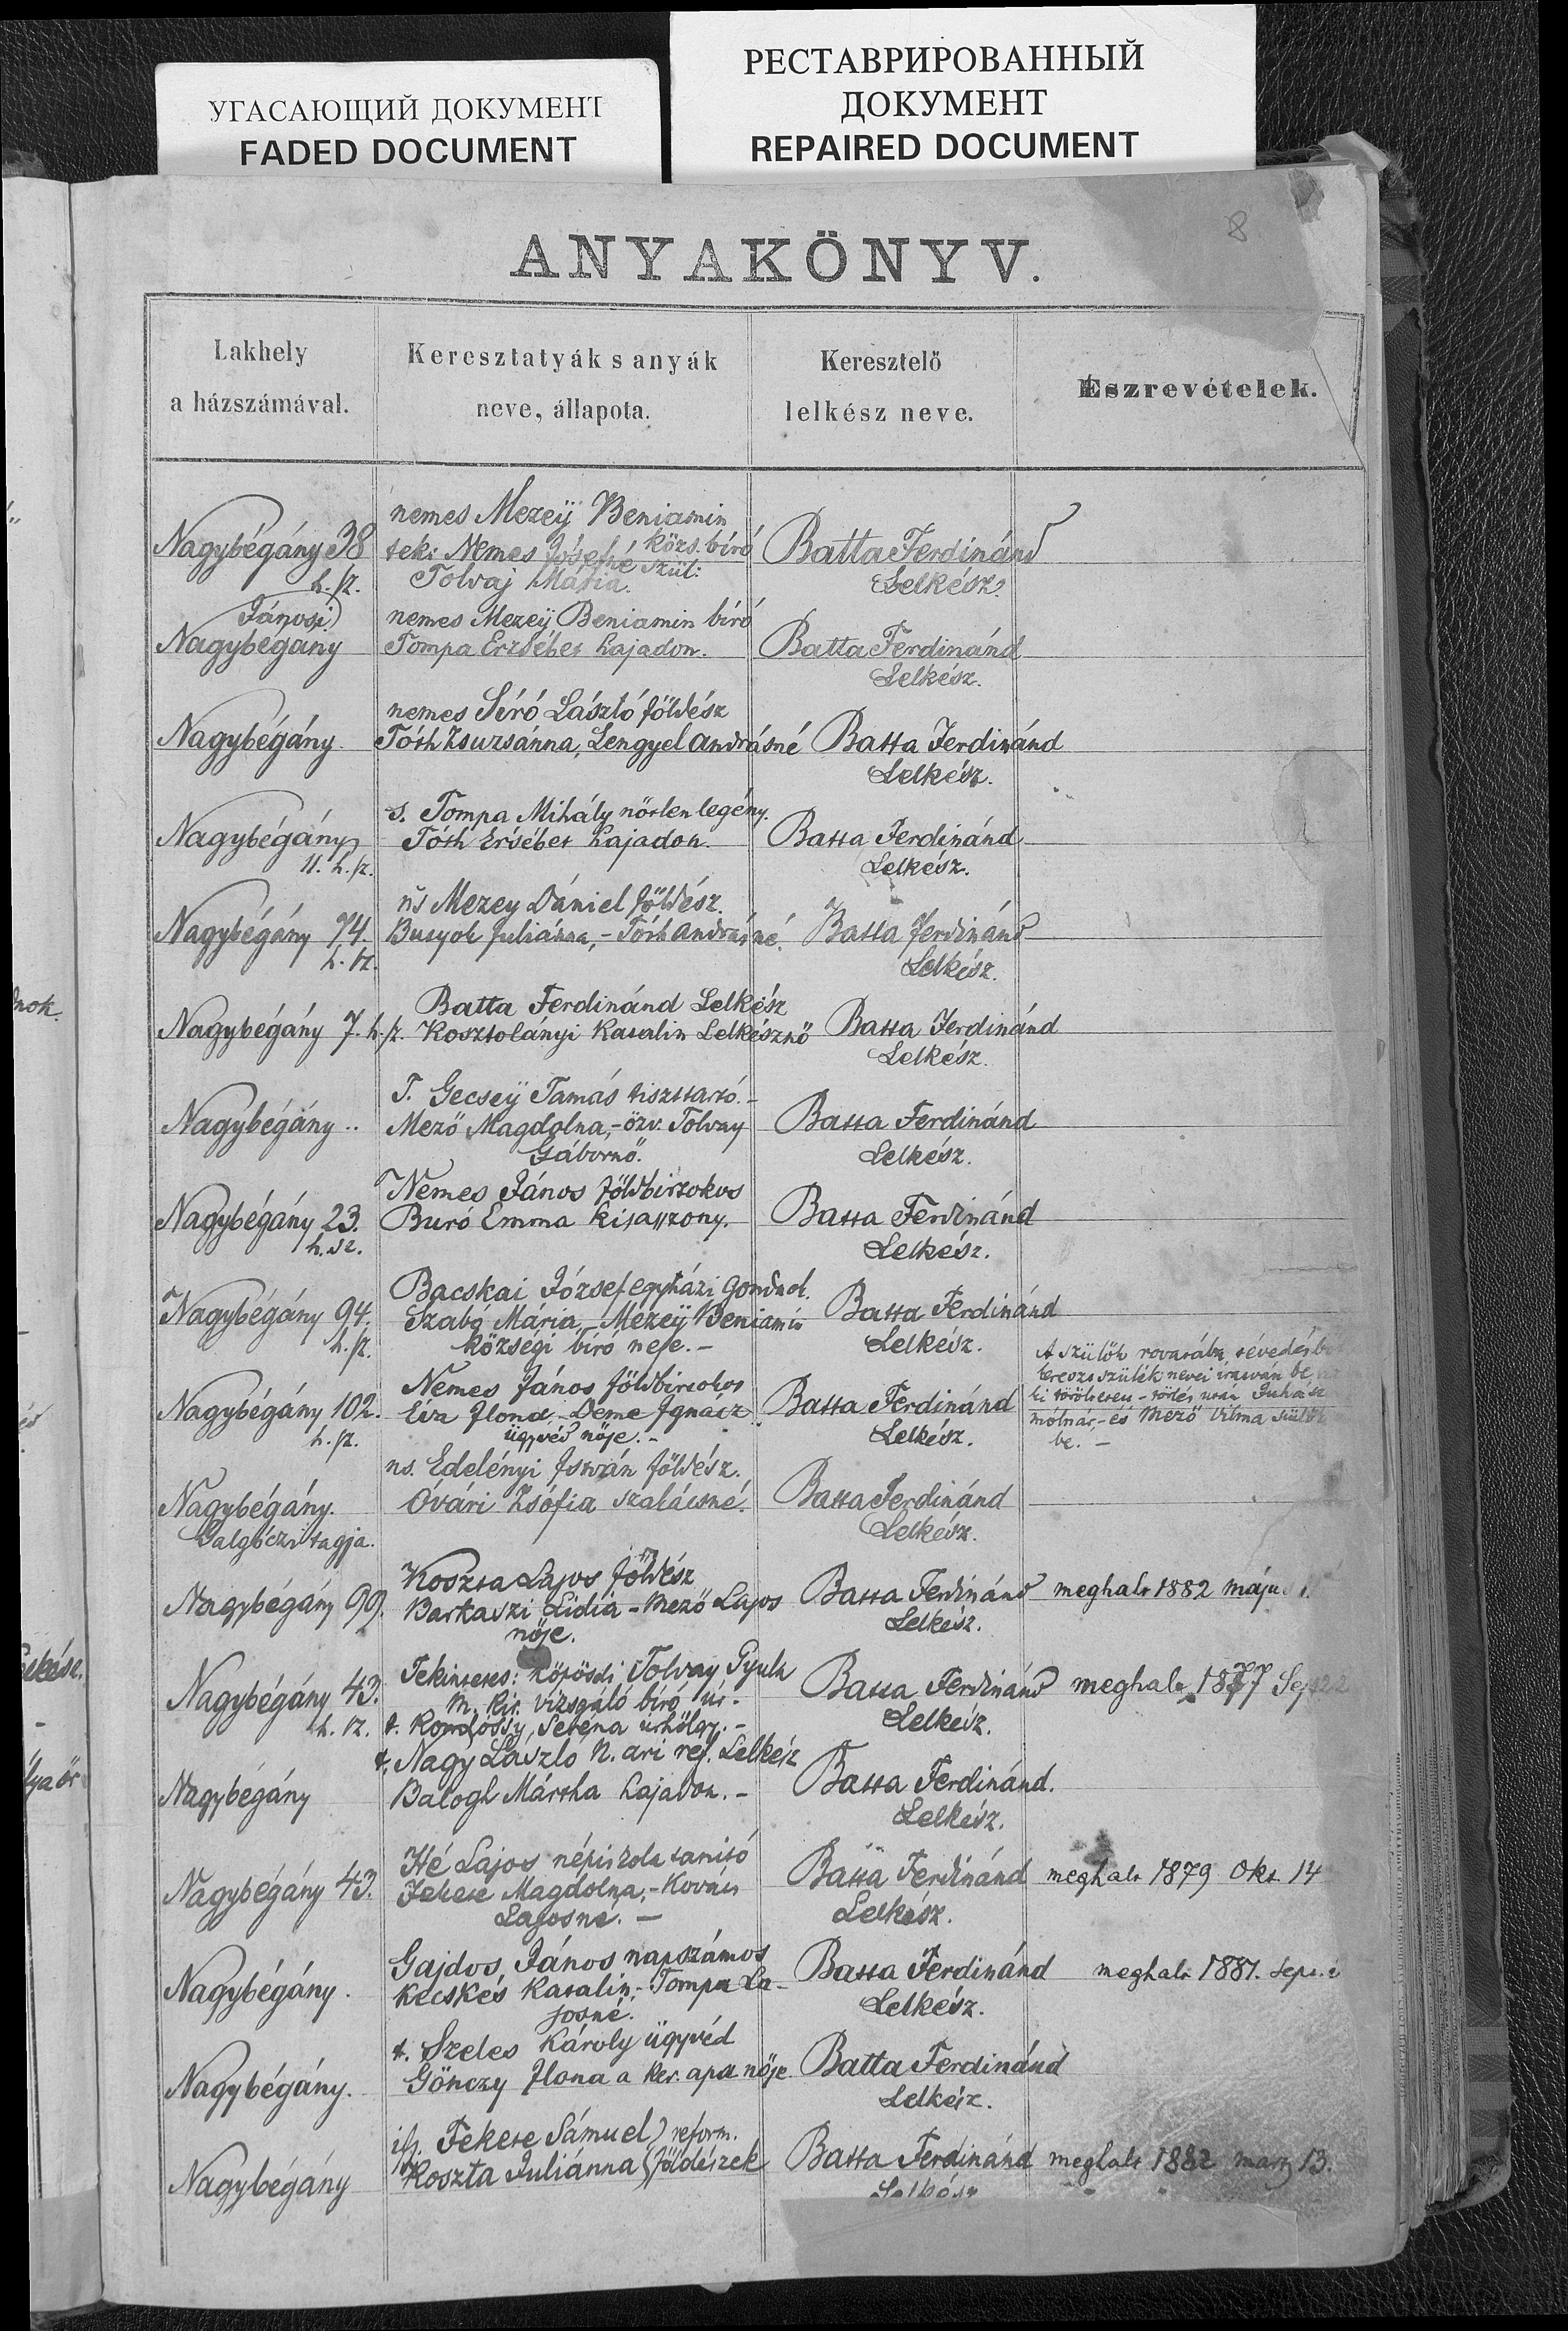 УГАСАЮЩИЙ ДОКУМЕНТ
FADED DOCUMENT
РЕСТАВРИРОВАННЫЙ
ДОКУМЕНТ
REPAIRED DOCUMENT
8
ANYAKÖNYV.
Lakhely
a házszámával.
Keresztatyák s anyák
neve, állapota.
Keresztelő
lelkész neve.
Észrevételek.
Nagybégány 38
h. sz.
nemes Mezeÿ Beniamin
közs. bíró
tek: Nemes Józsefné szül:
Tolvaj Mária.
Batta Ferdinánd
Lelkész.
Jánosi
Nagybégány
nemes Mezeÿ Beniamin bíró
Tompa Erzsébet hajadon.
Batta Ferdinánd
Lelkész.
Nagybégány.
nemes Síró László földész
Tóth Zsuzsánna, Lengyel Andrásné
Batta Ferdinánd
Lelkész.
Nagybégány
11. h. sz.
s. Tompa Mihály nőtlen legény.
Tóth Ersébet hajadon.
Batta Ferdinánd
Lelkész.
Nagybégány 74.
h. sz.
ns Mezey Dániel földész.
Julianna, - Tóth Andrásné.
Batta Ferdinánd
Lelkész.
Nagybégány 7. h. sz.
Batta Ferdinánd Lelkész
Kosztolányi Katalin Lelkésznő
Batta Ferdinánd
Lelkész.
Nagybégány ..
T. Gecseÿ Tamás tiszttartó. -
Mező Magdolna, - özv. Tolvay
Gábornő.
Batta Ferdinánd
Lelkész.
Nagybégány 23.
h. sz.
Nemes János földbirtokos
Buró Emma kisasszony.
Batta Ferdinánd
Lelkész.
Nagybégány 94.
h. sz.
Bacskai József egyházi gondnok.
Szabó Mária, - Mezeÿ Beniamin
községi bíró neje. -
Batta Ferdinánd
Lelkész.
Nagybégány 102.
h. sz.
Nemes János földbirtokos
Éva Ilona - Deme Ignácz
ügyvéd nője. -
Batta Ferdinánd
Lelkész.
A szülők rovatába, tévedésbő
kereszt szülék nevei iratván be,
ki töröltetett - után Juhász
mólnár, - és Mező Vilma szülők
be. -
Nagybégány.
Galgóczi tagja.
ns. Edelényi István földész.
Óvári Zsófia szakácsné.
Batta Ferdinánd
Lelkész.
Nagybégány 99.
Koszta Lajos földész
Bartaszi Lidia - Mező Lajos
nője.
Batta Ferdinánd
Lelkész.
meghalt 1882 május
Nagybégány 43.
h. sz.
Tekintetes: Tolvay Gyula
m. kir. vizsgáló bíró úr. -
t. Seréna úrhölgy. -
Batta Ferdinánd
Lelkész.
meghalt 1877 Sept 22
Nagybégány
t. Nagy László N. ari ref. Lelkész
Balogh Mártha hajadon. -
Batta Ferdinánd.
Lelkész.
Nagybégány 43.
Hé Lajos népiskola tanitó
Fekete Magdolna, - Kovács
Lajosné. -
Batta Ferdinánd
Lelkész.
meghalt 1879 Okt. 14
Nagybégány.
Gajdos János napszámos
Kecskés Katalin, - Tompa La-
josné.
Batta Ferdinánd
Lelkész.
meghalt 1881. Sept.
Nagybégány.
t. Szeles Károly ügyvéd
Gönczy Ilona a ker. apa nője.
Batta Ferdinánd
Lelkész.
Nagybégány
ifj. Fekete Sámuel) reform.
Koszta Juliánna (földészek
Batta Ferdinánd
Lelkész
meghalt 1882 marz 13.